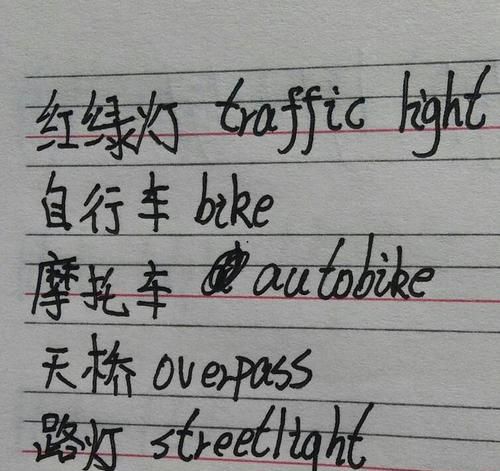 红绿灯 traffic light
自行车 bike
摩托车 autobike
天桥 overpass
路灯 streetlight